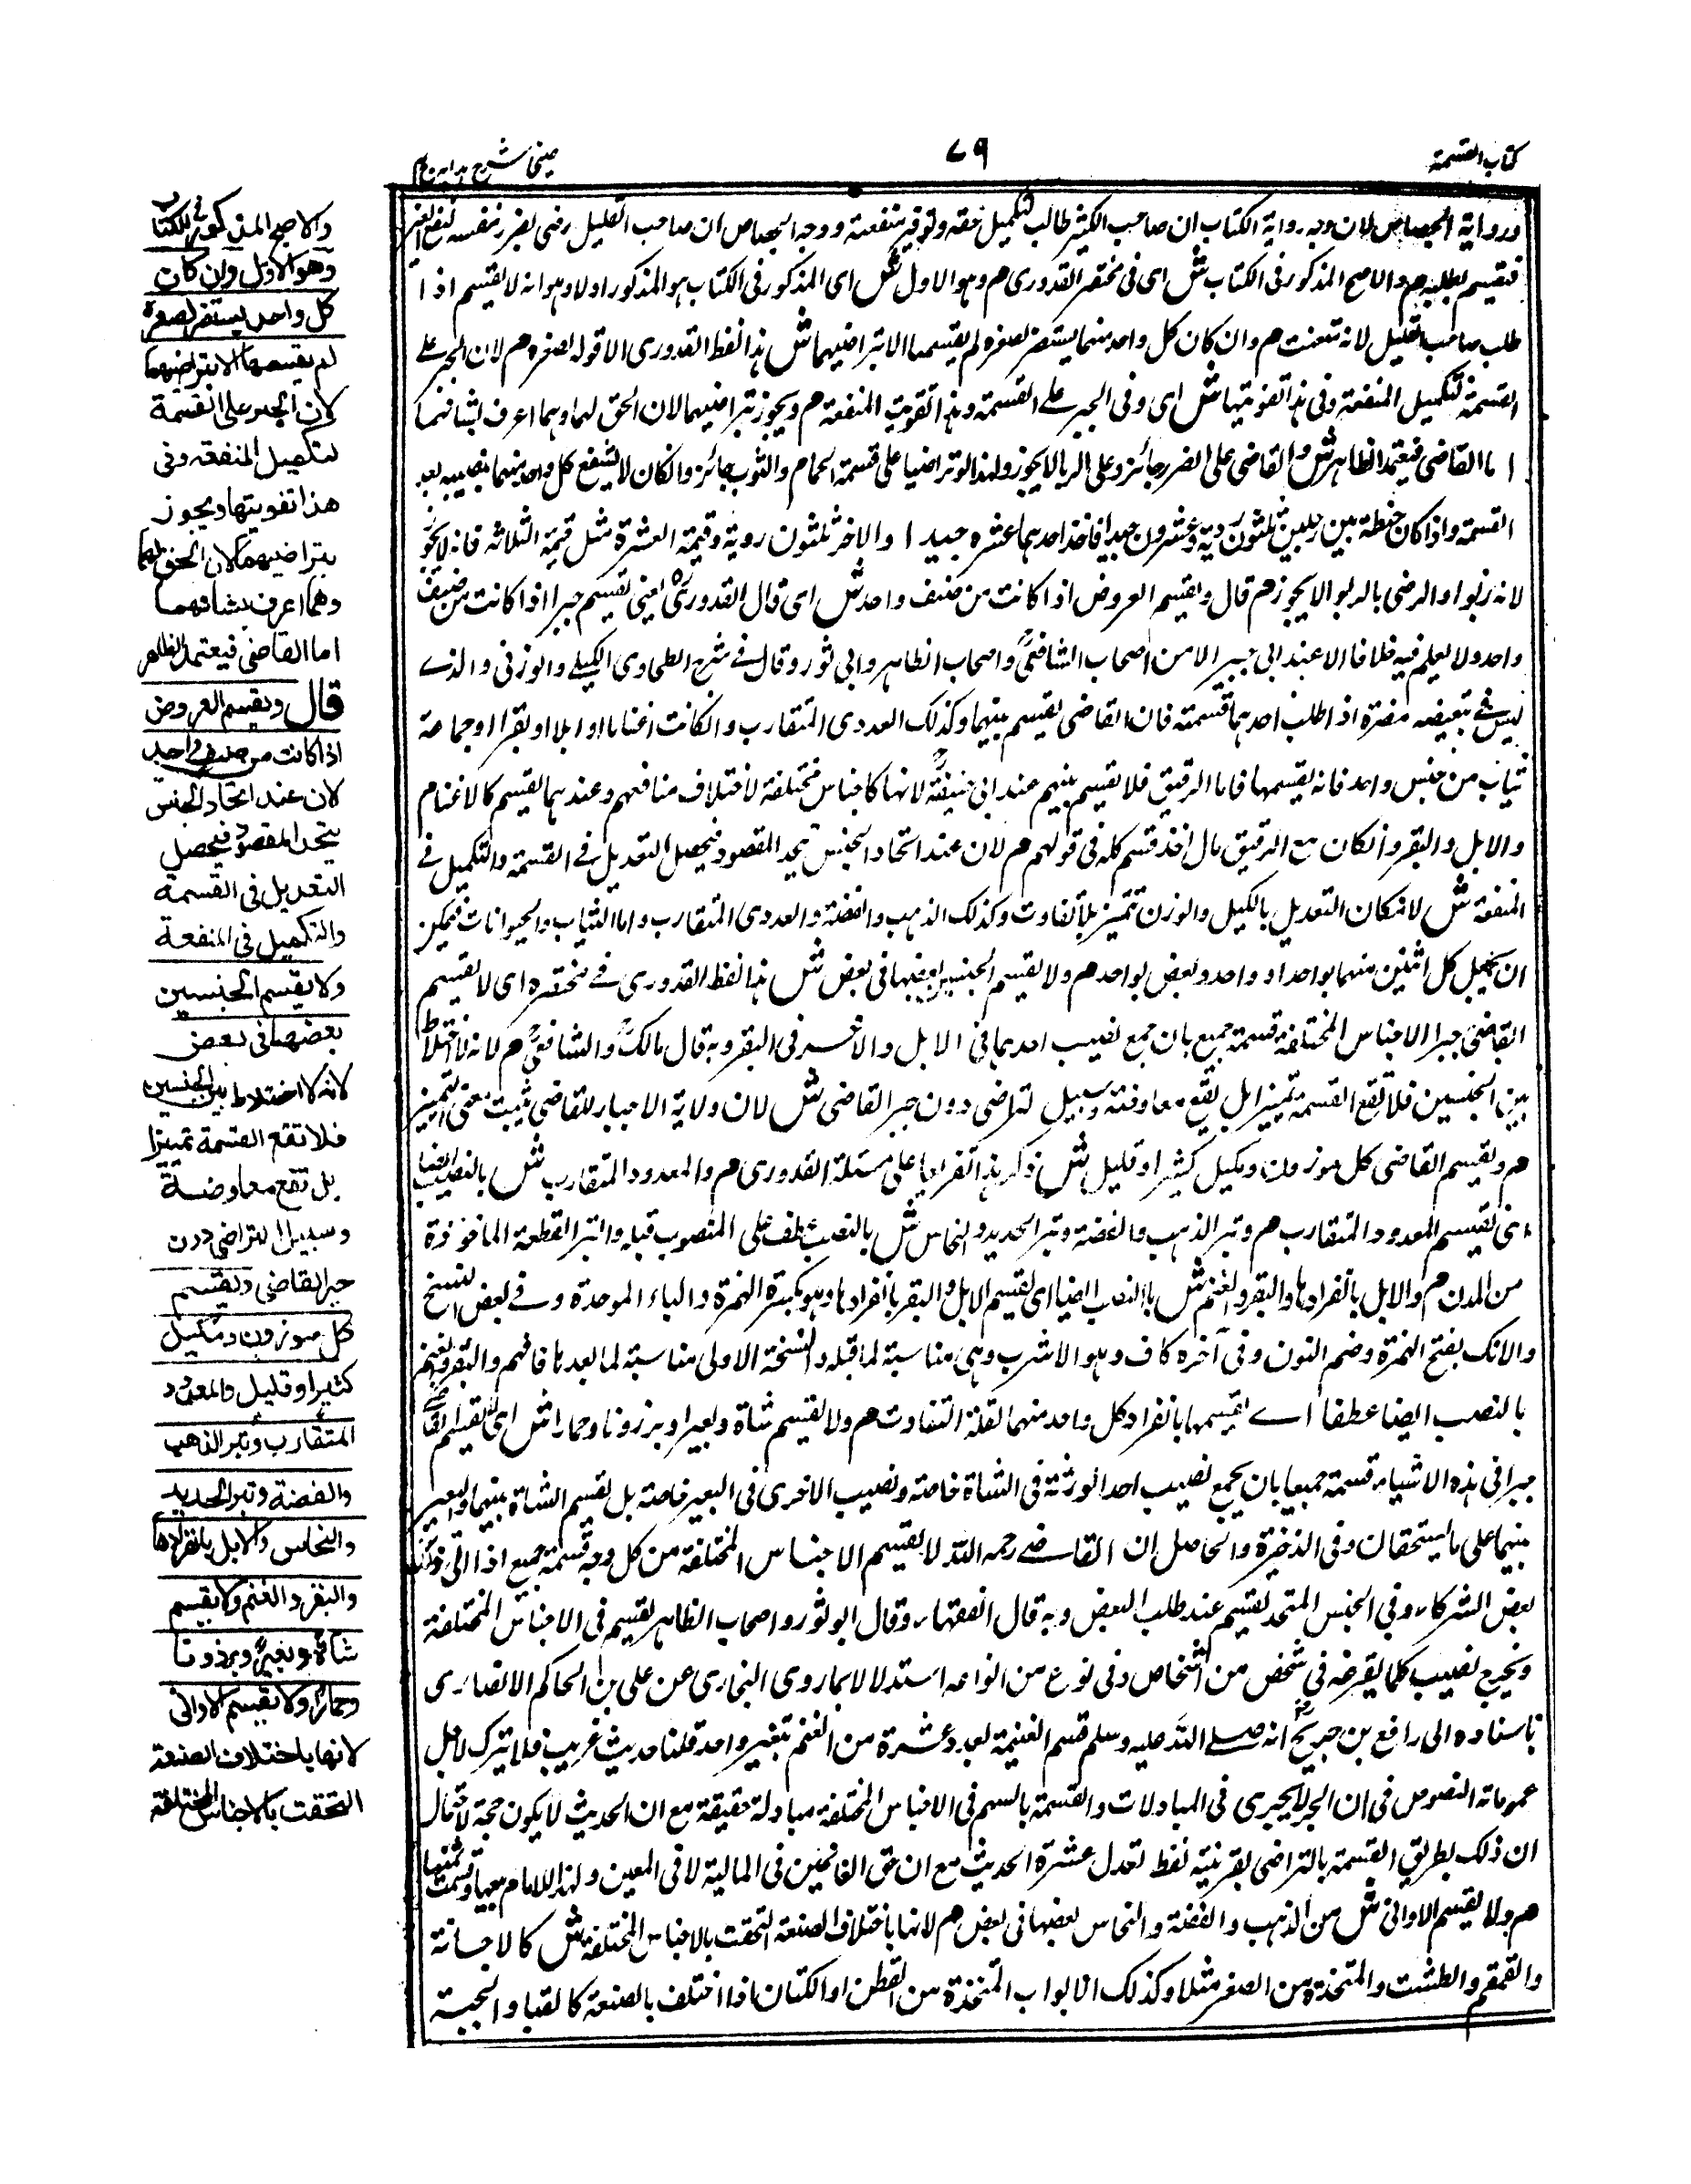 كتاب القسمة
٧٩
عينى شرح هدايه ج ٤
ورواية الجصاص لان وجه رواية الكتاب ان صاحب الكثير طالب لتكميل حقه وتوفير منفعته ووجه الجصاص ان صاحب القليل رضى بضرر نفسه لنفع الغير
فتقسيم بطلبه هم والاصح المذكور فى الكتاب ش اى فى مختصر القدورى هم وهو الاول ش اى المذكور فى الكتاب هو المذكور اولا وهو انه لا يقسم اذا
طلب صاحب القليل لانه متعنت هم وان كان كل واحد منهما يستضر لصغره لم يقسمها الا بتراضيهما ش هذا لفظ القدورى الا قوله لصغره هم لان الجبر على
القسمة لتكميل المنفعة وفى هذا تفويتها ش اى وفى الجبر على القسمة وهذا تفويت المنفعة هم ويجوز بتراضيهما لان الحق لهما وهما اعرف بشانهما
اما القاضى فيعتمد الظاهر ش والقاضى على الضرر جائز وعلى الربا لا يجوز ولهذا لو تراضيا على قسمة الحمام والثوب جائز وان كان لا ينتفع كل واحد منهما بنصيبه بعد
القسمة واذا كان حنطة بين رجلين ثلثون ردية وعشرون جيدا فاخذ احدهما عشره جيدا والاخر ثلثون ردية وقيمة العشرة مثل قيمة الثلاثه فانه لا يجوز
لانه ربوا والرضى بالربوا لا يجوز هم قال ويقسم العروض اذا كانت من صنف واحد ش اى قال القدورى اعنى تقسيم جبرا اذا كانت من صنف
واحد ولا يعلم فيه خلافا الا عند ابى جبير الا من اصحاب الشافعى واصحاب الظاهر وابى ثور وقال فى شرح الطحاوى الكيلى والوزنى والذى
ليس فى تبعيضه مضرة اذا طلب احدهما قسمته فان القاضى يقسم بينهما وكذلك العددى المتقارب وان كانت اغناما او ابلا او بقرا او جماعة
ثياب من جنس واحد فانه يقسمها فاما الرقيق فلا يقسم بينهم عند ابى حنيفة لانها كاجناس مختلفة لاختلاف منافعهم وعندهما يقسم كالاغنام
والابل والبقر وان كان مع الرقيق مال اخذ قسم كله فى قولهم هم لان عند اتحاد الجنس يتحد المقصود فيحصل التعديل فى القسمة والتكميل فى
المنفعة ش لامكان التعديل بالكيل والوزن تتميز بلا تفاوت وكذلك الذهب والفضة والعددى المتقارب واما الثياب والحيوانات فيمكن
ان يجعل كل اثنين منهما بواحد او واحد وبعض بواحد هم ولا يقسم الجنسين بعضها فى بعض ش هذا لفظ القدورى فى مختصره اى لا يقسم
القاضى جبرا الاجناس المختلفة قسمة جميع بان جمع نصيب احدهما فى الابل والاخر فى البقر وبه قال مالك والشافعى هم لانه لا اختلاط
بين الجنسين فلا تقع القسمة تمييزا بل تقع معاوضة وسبيل لتراضى دون جبر القاضى ش لان ولاية الاجبار للقاضى ثبت بمعنى التمييز
هم ويقسم القاضى كل موزون ومكيل كثير او قليل ش ذكر هذا تفريعا على مسئلة القدورى هم والمعدود المتقارب ش بالنصب ايضا
اى يقسم المعدود المتقارب هم وتبر الذهب والفضة وتبر الحديد والنحاس ش بالنصب عطف على المنصوب قبله والتبر القطعة الماخوذة
من المدن هم والابل بانفرادها والبقر والغنم ش بالنصب ايضا اى يقسم الابل والبقر بانفرادها وهو بكسرة الهمزة والباء الموحدة وفى بعض النسخ
والانك بفتح الهمزة وضم النون وفى آخره كاف وهو الاشرب وهى مناسبة لما قبله والنسخة الاولى مناسبة لما بعدها فافهم والبقر والغنم
بالنصب ايضا عطفا اے يقسمها بانفراد كل واحد منهما لقلة التفاوت هم ولا يقسم شاة وبعيرا وبرذونا وحمارا ش اى لا يقسم القاضى
جبرا فى هذه الاشياء قسمة جميعا بان يجمع نصيب احد الورثة فى الشاة خاصة ونصيب الاخرى فى البعير خاصة بل يقسم الشاة بينهما والبعير
بينهما على ما يستحقان وفى الذخيرة والحاصل ان القاضے رحمه الله لا يقسم الاجناس المختلفة من كل وجه قسمة جميع اذا ابى ذلك
بعض الشركاء وفى الجنس المتحد يقسم عند طلب البعض وبه قال الفقهاء وقال ابو ثور واصحاب الظاهر يقسم فى الاجناس المختلفة
ويجمع نصيب كلما يقرضه فى شخص من اشخاص وفى نوع من انواعه استدلالا بما روى البخارى عن على بن الحاكم الانصارى
باسناده الى رافع بن خديج انه صلے الله عليه وسلم قسم الغنيمة لعد عشرة من الغنم ببعير واحد قلنا حديث غريب فلا يترك لاجل
عمومات النصوص فى ان الجبر لا يجرى فى المبادلات والقسمة بالسهم فى الاجناس المختلفة مبادلة حقيقة مع ان الحديث لا يكون حجة لاحتمال
ان ذلك بطريق القسمة بالتراضى بقرينة لفظ تعدل عشرة الحديث مع ان حق الغانمين فى المالية لا فى المعين ولهذا للامام بيعها وقسمت ثمنها
هم ولا يقسم الاوانى ش من الذهب والفضة والنحاس بعضها فى بعض هم لانها باختلاف الصنعة التحقت بالاجناس المختلفة ش كالاجانة
والقمقم والطشت والمتخذة من الصفر مثلا وكذلك الابواب المتخذة من القطن او الكتان اذا اختلف بالصنعة كالقبا والجبة
والاصح المذكور فى الكتاب
وهو الاول وان كان
كل واحد يستضر لصغره
لم يقسمها الا بتراضيهما
لان الجبر على القسمة
لتكميل المنفعة وفى
هذا تفويتها ويجوز
بتراضيهما لان الحق لهما
وهما اعرف بشانهما
اما القاضى فيعتمد الظاهر
قال ويقسم العروض
اذا كانت من صنف واحد
لان عند اتحاد الجنس
يتحد المقصود فيحصل
التعديل فى القسمة
والتكميل فى المنفعة
ولا يقسم الجنسين
بعضها فى بعض
لانه لا اختلاط بين الجنسين
فلا تقع القسمة تمييزا
بل تقع معاوضة
وسبيل التراضى دون
جبر القاضى ويقسم
كل موزون ومكيل
كثير او قليل والمعدود
المتقارب وتبر الذهب
والفضة وتبر الحديد
والنحاس والابل بانفرادها
والبقر والغنم ولا يقسم
شاة وبعيرا وبرذونا
وحمارا ولا يقسم الاوانى
لانها باختلاف الصنعة
التحقت بالاجناس المختلفة